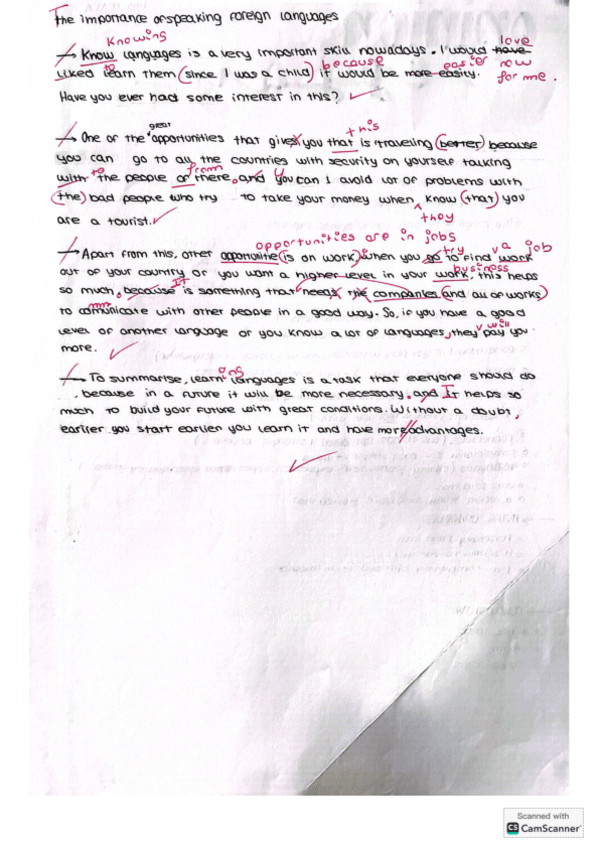 The importance of speaking foreign languages
Knowing love
→ Know languages is a very important skill nowadays. I would have
because easier now
liked to learn them (since I was a child) it would be more easily. for me.
Have you ever had some interest in this?
great this
→ One of the opportunities that gives you that is traveling (better) because
you can go to all the countries with security on yourself talking
to from
with the people of there, and You can avoid lot of problems with
(the) bad people who try to take your money when know (that) you
they
are a tourist.
opportunities are in jobs
try a job
→ Apart from this, other opportunitie (is on work) when you go to find work
business
out of your country or you want a higher level in your work, this helps
It
so much, because is something that needs the companies (and all of works)
to comunicate with other people in a good way. So, if you have a good
will
level of another language or you know a lot of languages, they pay you
more.
ing
→ To summarise, learn languages is a task that everyone should do
, because in a future it will be more necessary. and It helps so
much to build your future with great conditions. Without a doubt,
earlier you start earlier you learn it and have more advantages.
Scanned with
CS CamScanner